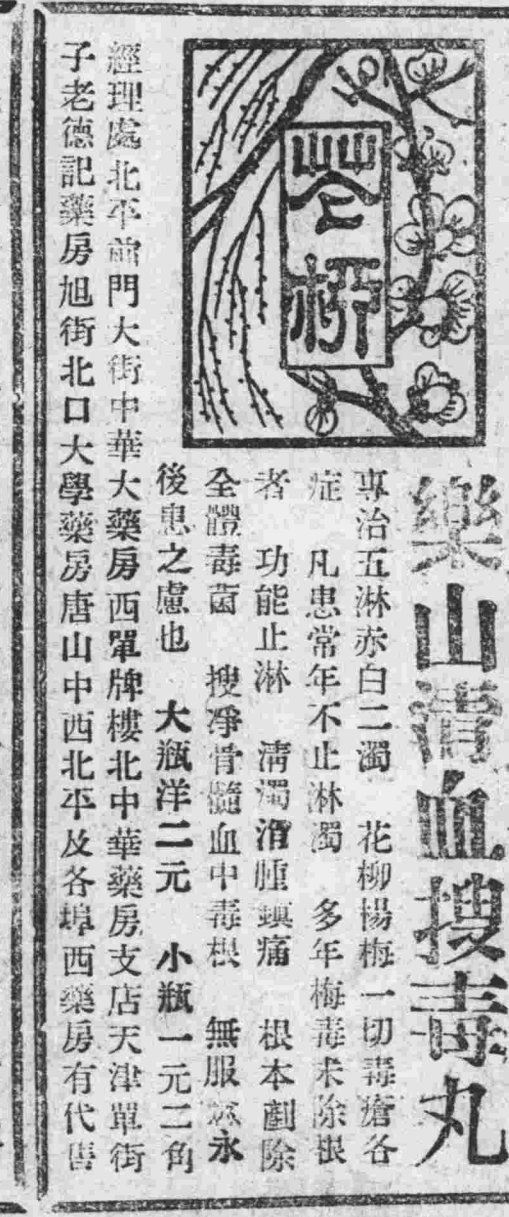 花柳
樂山清血搜毒丸
專治五淋赤白二濁 花柳楊梅一切毒瘡各
症 凡患常年不止淋濁 多年梅毒未除根
者 功能止淋 清濁消腫鎮痛 根本剷除
全體毒菌 搜凈骨髓血中毒根 無服 永
後患之慮也 大瓶洋二元 小瓶一元二角
經理處北平前門大街中華大藥房西單牌樓北中華藥房支店天津單街
子老德記藥房旭街北口大學藥房唐山中西北平及各埠西藥房有代售